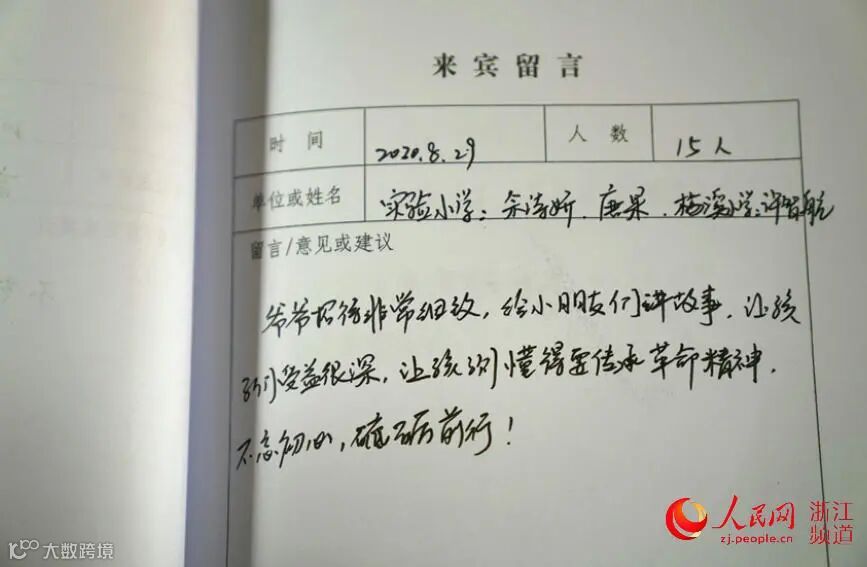 来宾留言
时间 2020.8.29 人数 15人
单位或姓名 实验小学:余诗妍.唐果.梅溪小学:许智航
留言/意见或建议
爷爷招待非常细致,给小朋友们讲故事.让孩
子们受益很深,让孩子们懂得要传承革命精神.
不忘初心,砥砺前行!
人民网 浙江频道
zj.people.cn
大数跨境